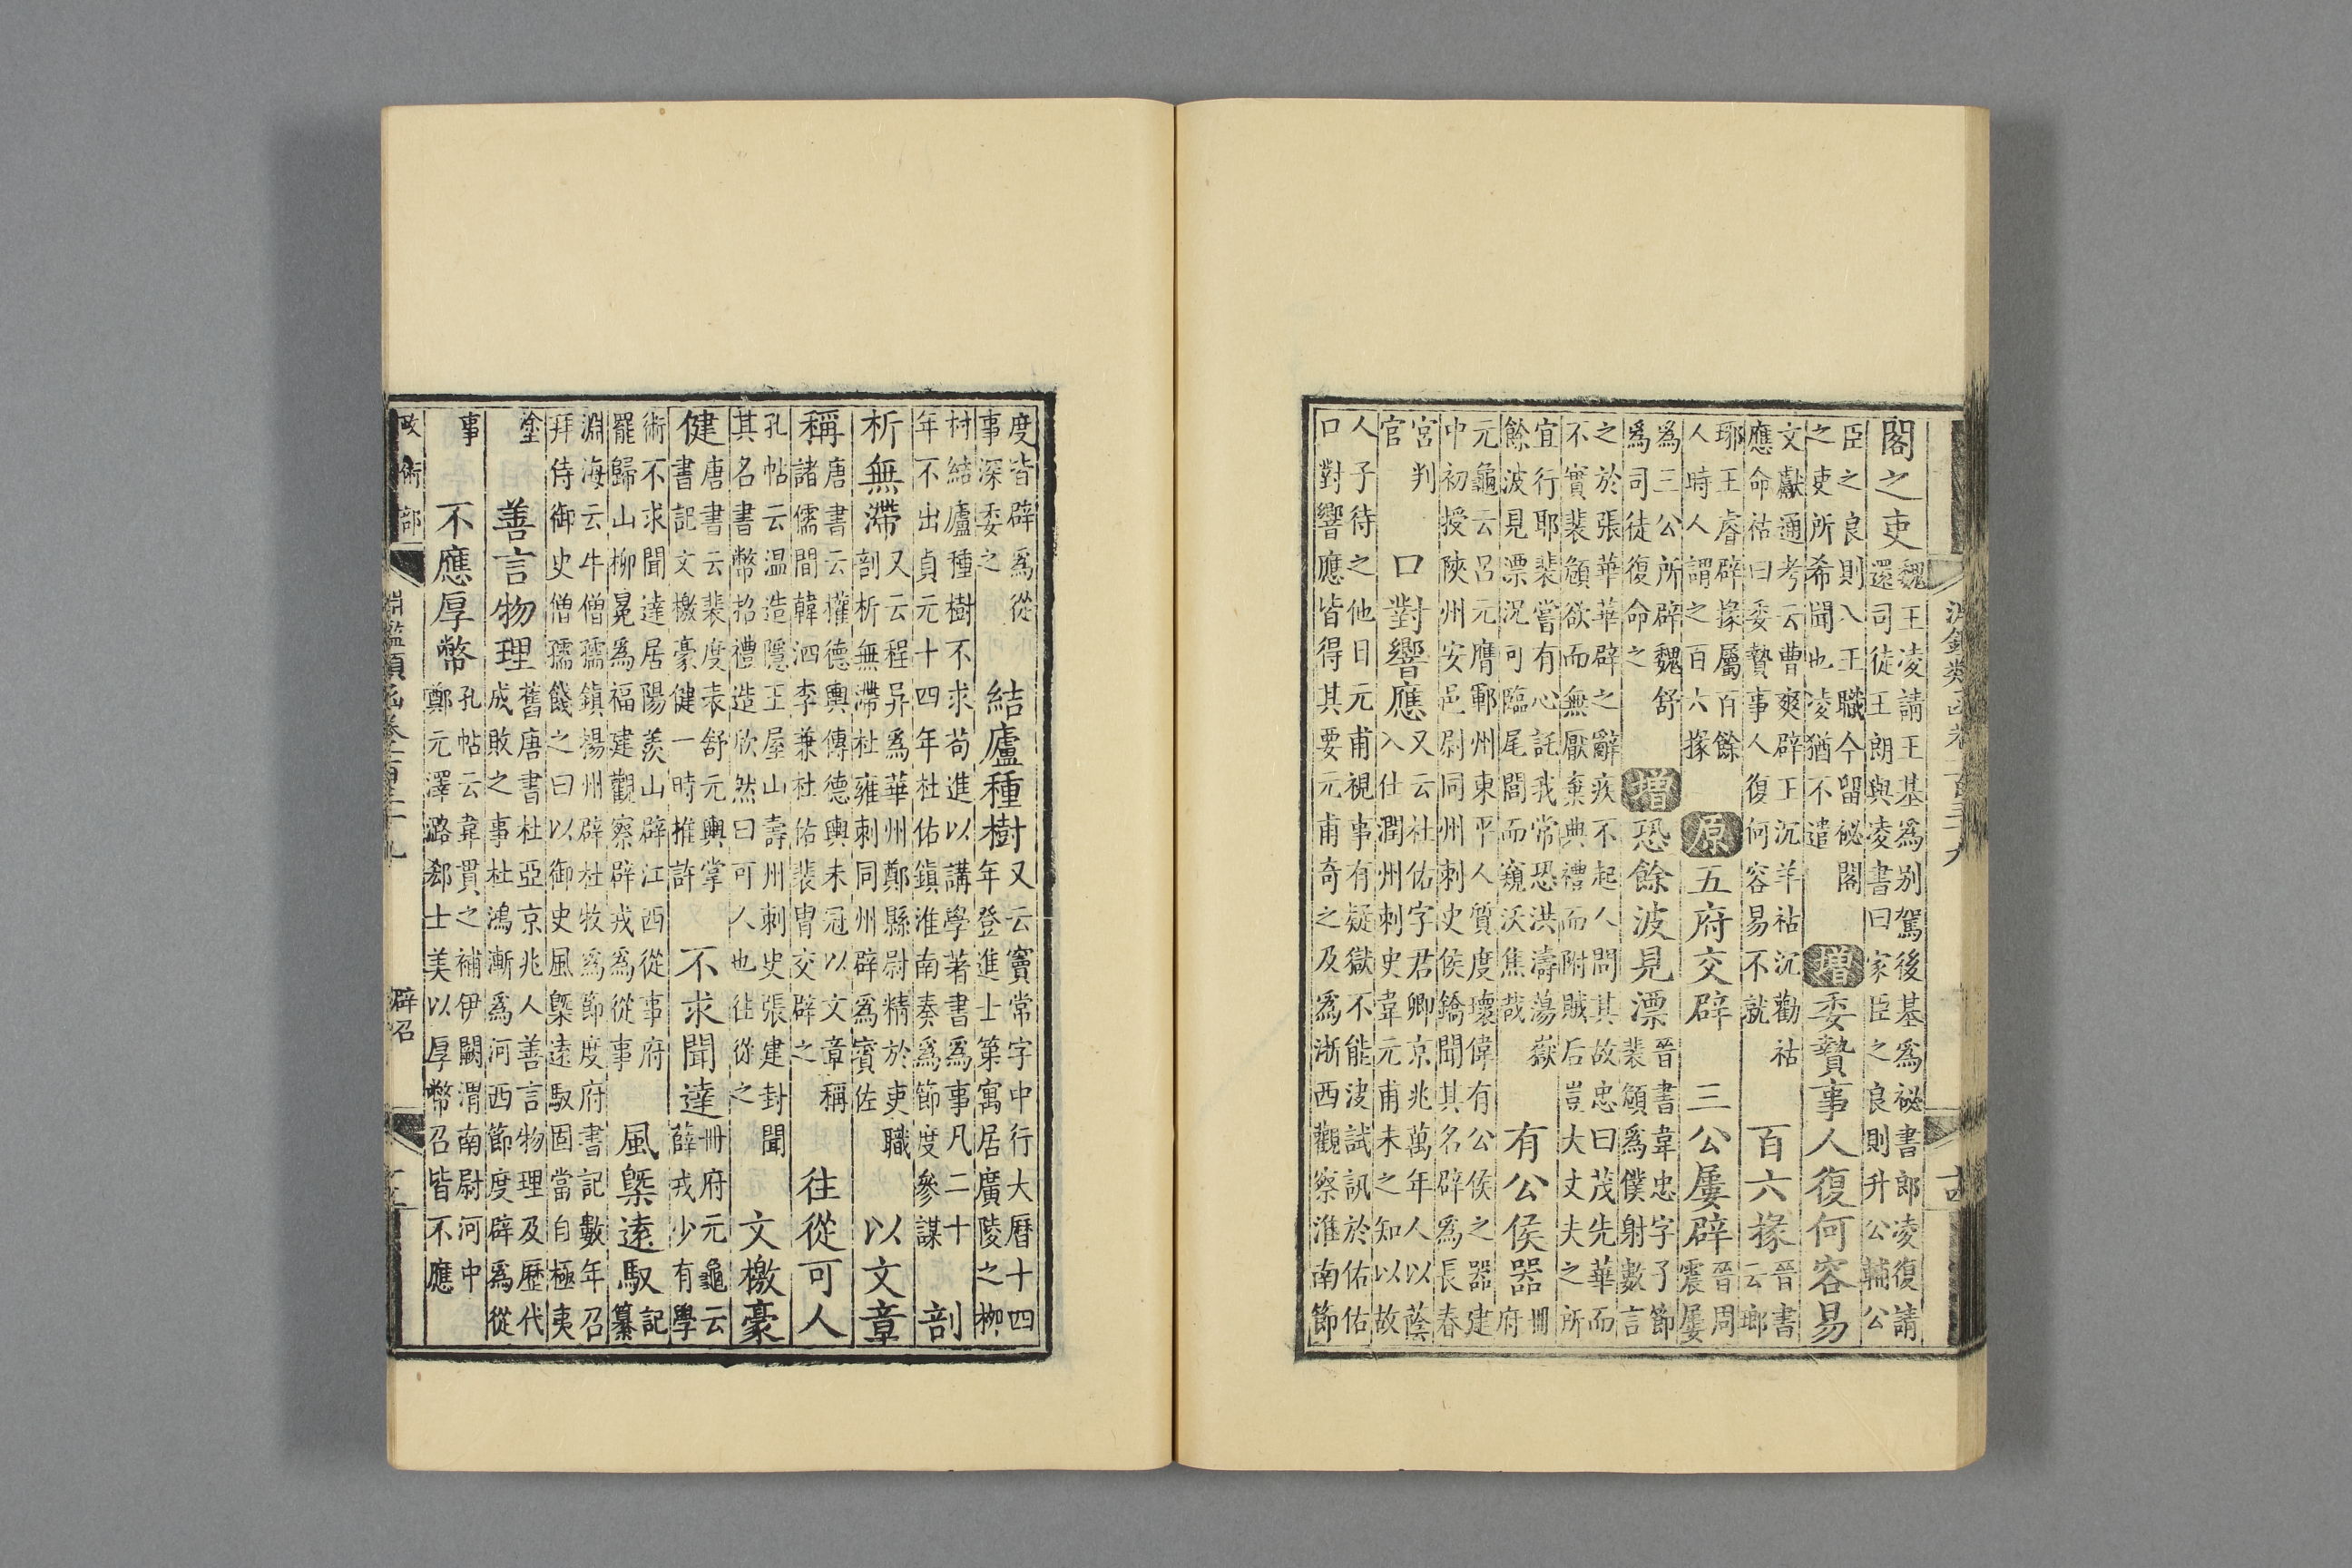 淵鑑類函卷一百三十九
閣之吏魏王凌請王基爲别駕後基爲祕書郎凌復請還司徒王朗與凌書曰家臣之良則升公輔公
臣之良則入王職今留祕閣之吏所希聞也凌猶不遣增委贄事人復何容易
文獻通考云曹爽辟王沉羊祜沉勸祜應命祜曰委贄事人復何容易不就百六掾晉書云瑯
琊王睿辟掾屬百餘人時人謂之百六掾原五府交辟三公屢辟晉周震屢
爲三公所辟魏舒爲司徒復命之增恐餘波見漂晉書韋忠字子節裴頠爲僕射數言
之於張華華辟之辭疾不起人問其故忠曰茂先華而不實裴頠欲而無厭棄典禮而附賊后豈大丈夫之所
宜行耶裴嘗有心託我常恐洪濤蕩嶽餘波見漂況可臨尾閭而窺沃焦哉有公侯器冊府
元龜云呂元膺鄆州東平人質度瓌偉有公侯之器建中初授陝州安邑尉同州刺史侯鐈聞其名辟爲長春
宮判官口對響應又云杜佑字君卿京兆萬年人以蔭入仕潤州刺史韋元甫未之知以故
人子待之他日元甫視事有疑獄不能决試訊於佑佑口對響應皆得其要元甫奇之及爲浙西觀察淮南節
度皆辟爲從事深委之結廬種樹又云竇常字中行大曆十四年登進士第寓居廣陵之柳
村結廬種樹不求苟進以講學著書爲事凡二十年不出貞元十四年杜佑鎮淮南奏爲節度參謀剖
析無滯又云程异爲華州鄭縣尉精於吏職剖析無滯杜雍刺同州辟爲賓佐以文章
稱唐書云權德輿傳德輿未冠以文章稱諸儒間韓洄李兼杜佑裴冑交辟之往從可人
孔帖云温造隱王屋山壽州刺史張建封聞其名書幣招禮造欣然曰可人也往從之文檄豪
健唐書云裴度表舒元輿掌書記文檄豪健一時推許不求聞達冊府元龜云薛戎少有學
術不求聞達居陽羡山辟江西從事府罷歸山柳冕爲福建觀察辟戎爲從事風槩遠馭記纂
淵海云牛僧孺鎮揚州辟杜牧爲節度府書記數年召拜侍御史僧孺餞之曰以御史風槩遠馭固當自極夷
塗善言物理舊唐書杜亞京兆人善言物理及歷代成敗之事杜鴻漸爲河西節度辟爲從
事不應厚幣孔帖云韋貫之補伊闕渭南尉河中鄭元澤潞郄士美以厚幣召皆不應
政術部 淵鑑類函卷一百三十九 辟召